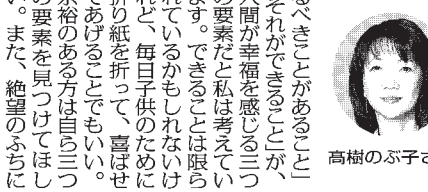 るべきことがあること」
それができること」が、
人間が幸福を感じる三つ
の要素だと私は考えてい
ます。できることは限ら
れているかもしれないけ
れど、毎日子供のために
折り紙を折って、喜ばせ
てあげることでもいい。
余裕のある方は自ら三つ
の要素を見つけてほし
い。また、絶望のふちに
髙樹のぶ子さ